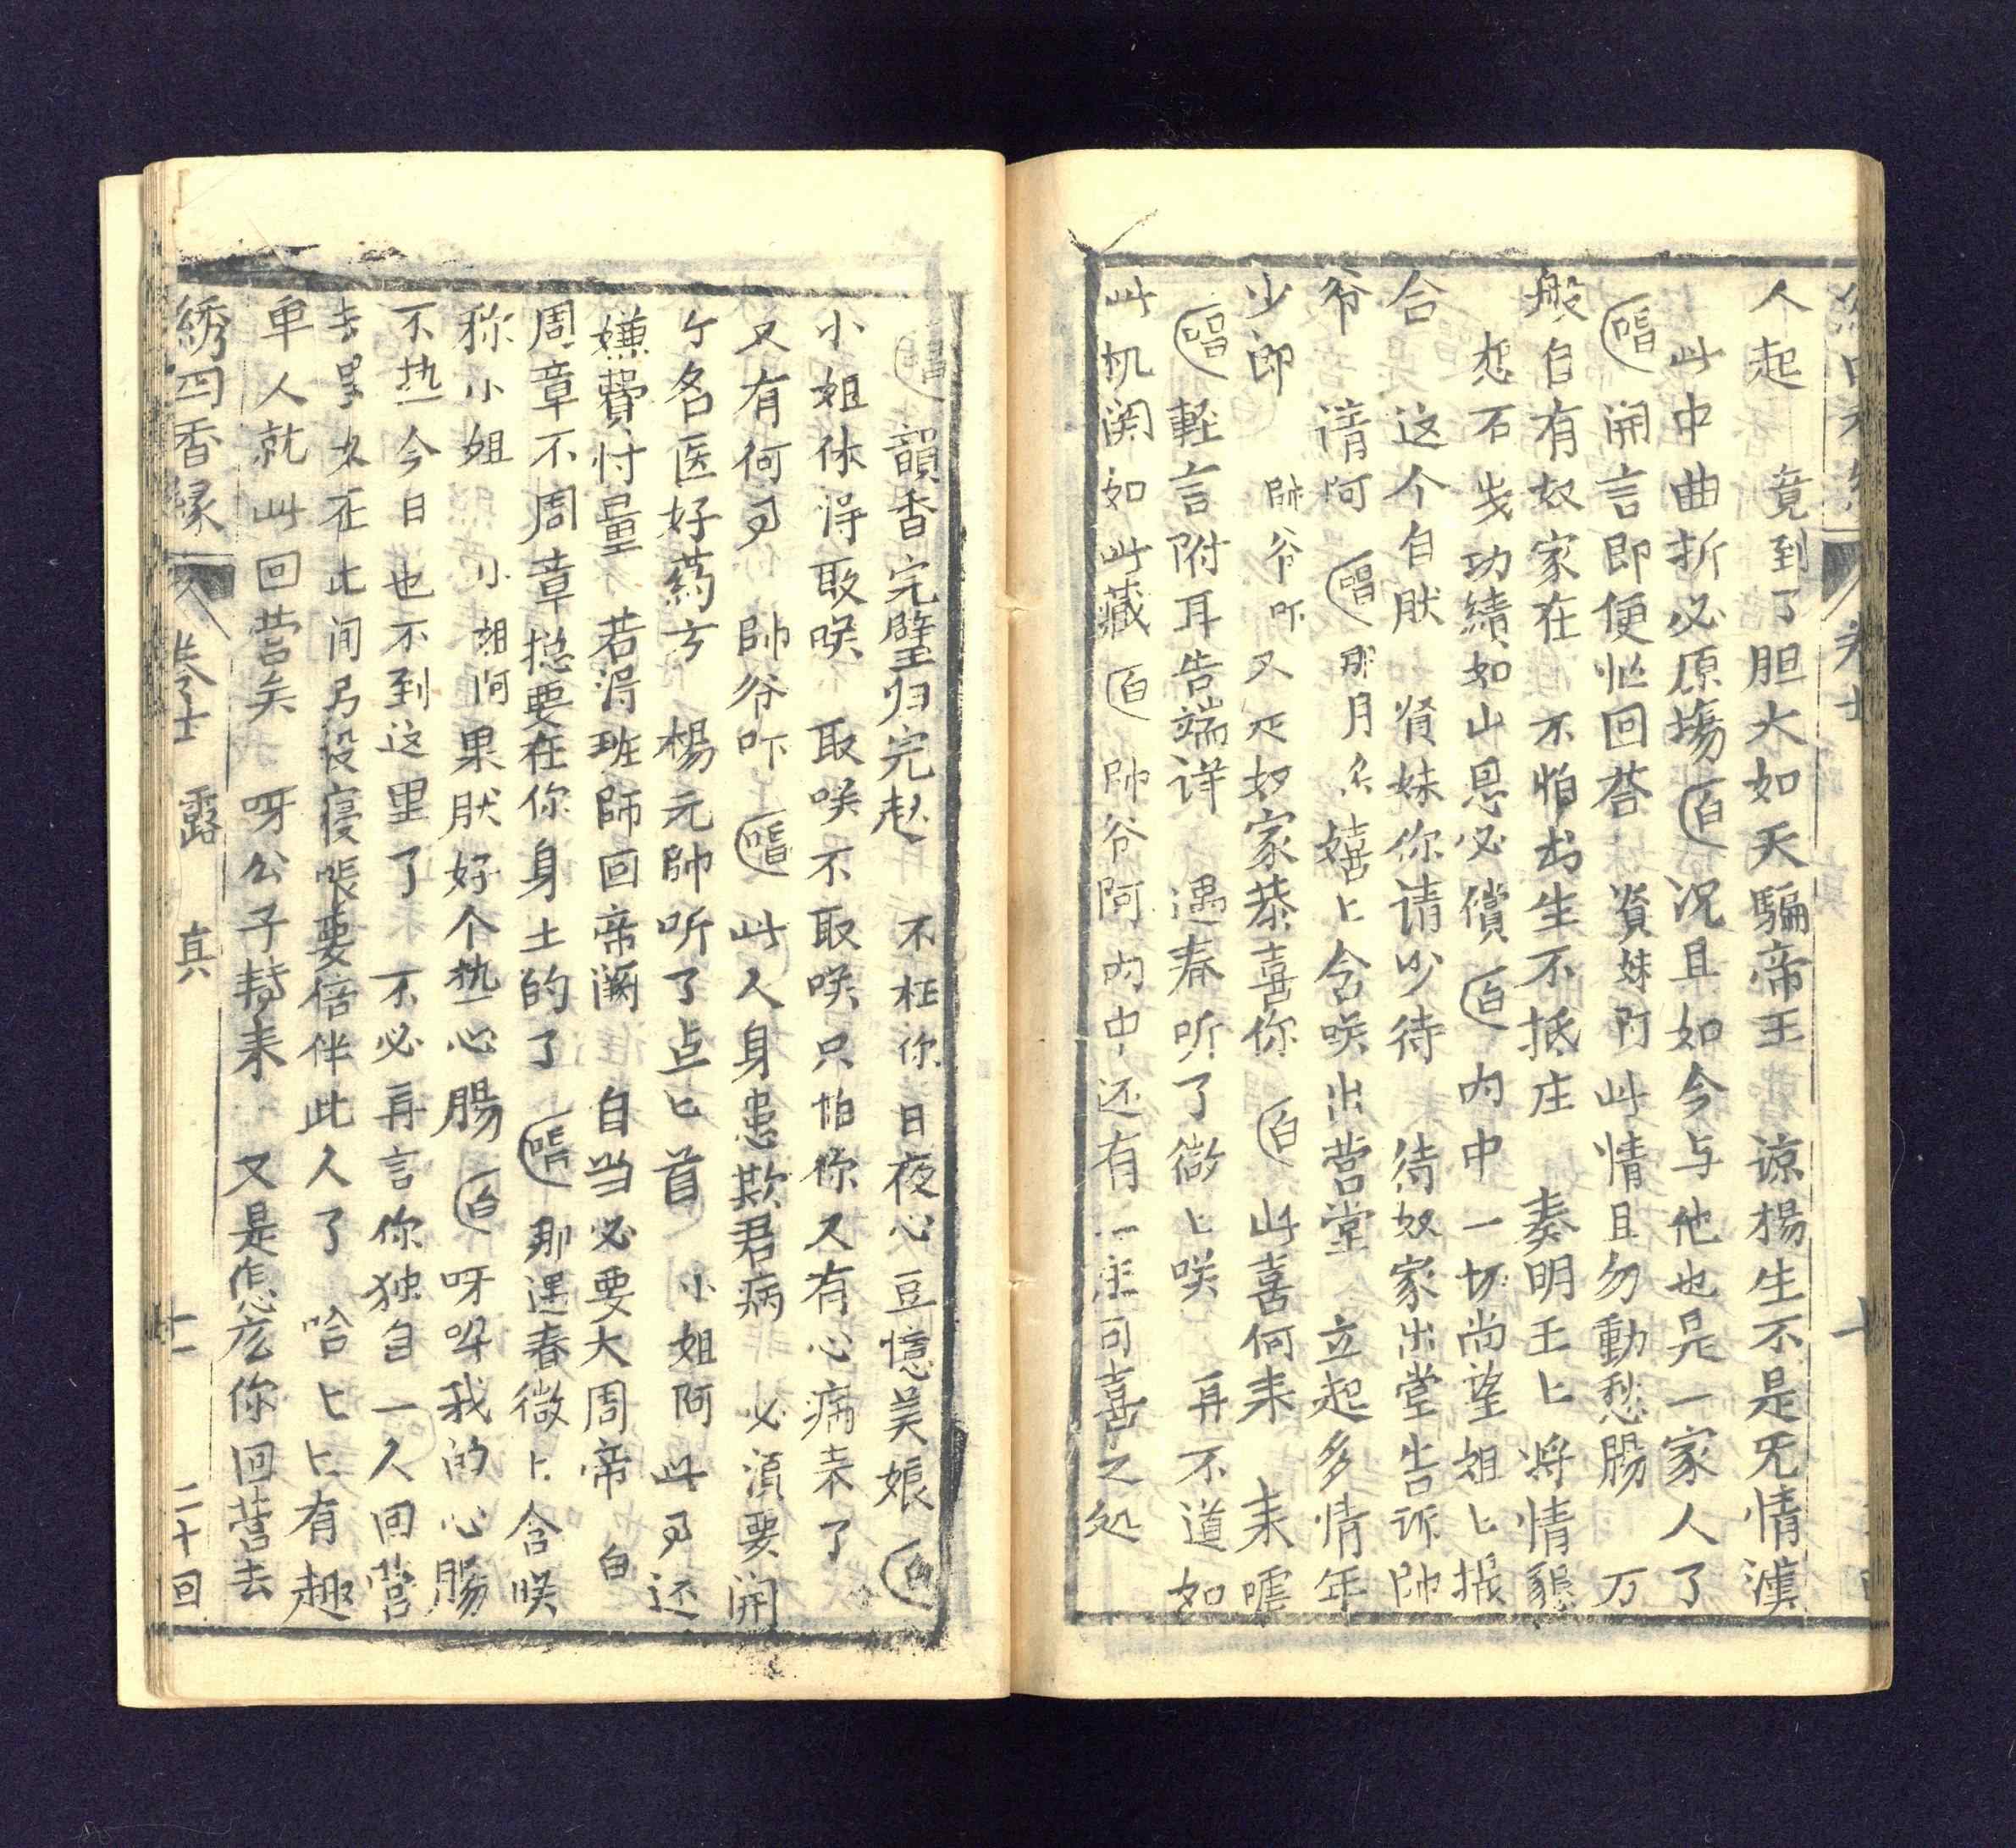 人起　竟到了胆大如天騙帝王　諒楊生不是旡情漢
此中曲折必原塲（白）况且如今与他也是一家人了
（唱）開言即便怅回荅　賢妹阿此情且勿動愁腸　万
般自有奴家在　不怕书生不抵庄　奏明王上將情懇
恕石戋功績如山恩必償（白）内中一切尚望姐匕掁
合　这个自肰　賢妹你请少待　待奴家出堂告訴帥
爷　請阿（唱）那月仙嬉匕含咲出営堂　立起多情年
少郎　帥爷吓又死奴家恭喜你（白）此喜何来　来嚯
（唱）軽言附耳告端详　遇春听了微匕咲　再不道如
此机関如此藏（白）帅爷阿内中还有一庄可喜之処
（唱）韻香完璧归完赵　不枉你日夜心豆憶美娘（白）
小姐休得取咲　取咲不取咲只怕你又有心病来了
又有何㕝　帥爷吓（唱）此人身患欺君病　必湏要開
个名医好药方　楊元帥听了点匕首　小姐阿此㕝还
嫌費忖量　若得班師回帝闕　自当必要大周帝　白
周章不周章捴要在你身士的了（唱）那遇春微匕含咲
称小姐　小姐阿果肰好个热心腸（白）呀呸我的心腸
不热今日也不到这里了　不必再言你独自一人回营
去罢奴在此间另設寝帳要陪伴此人了　哈匕匕有趣
单人就此回营矣　呀公子転来　又是怎広你回营去
綉四香緣　卷士　露真　十一　二十回